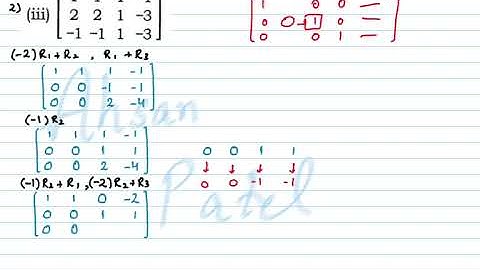 2) (iii) 1 1 1 -1
2 2 1 -3
-1 -1 1 -3
1 0 0 —
0 0 1 0 —
0 0 0 1 —
(-2)R₁+R₂ , R₁+R₃
1 1 1 -1
0 0 -1 -1
0 0 2 -4
(-1)R₂
1 1 1 -1
0 0 1 1
0 0 2 -4
0 0 1 1
↓ ↓ ↓ ↓
0 0 -1 -1
(-1)R₂+R₁ ,(-2)R₂+R₃
1 1 0 -2
0 0 1 1
0 0
Ahsan
Patel